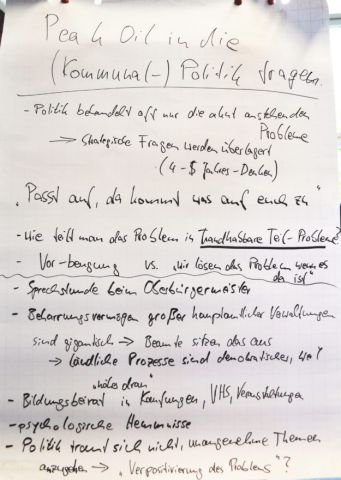 Peak Oil in die
(Kommunal-) Politik tragen.
- Politik behandelt oft nur die akut anstehenden
Probleme
→ strategische Fragen werden überlagert
(4-5 Jahres-Denken)
„Passt auf, da kommt was auf euch zu"
- Wie teilt man das Problem in handhabbare Teil-Probleme?
- Vor-beugung vs. „wir lösen das Problem wenn es
da ist"
- Sprechstunde beim Oberbürgermeister
- Beharrungsvermögen großer hauptamtlicher Verwaltungen
sind gigantisch → Beamte sitzen das aus
→ ländliche Prozesse sind demokratischer,
„näher dran"
- Bildungsbeirat in VHS, Veranstaltungen
- psychologische Hemmnisse
- Politik traut sich nicht, unangenehme Themen
anzugehen → „Verpositivierung des Problems"?